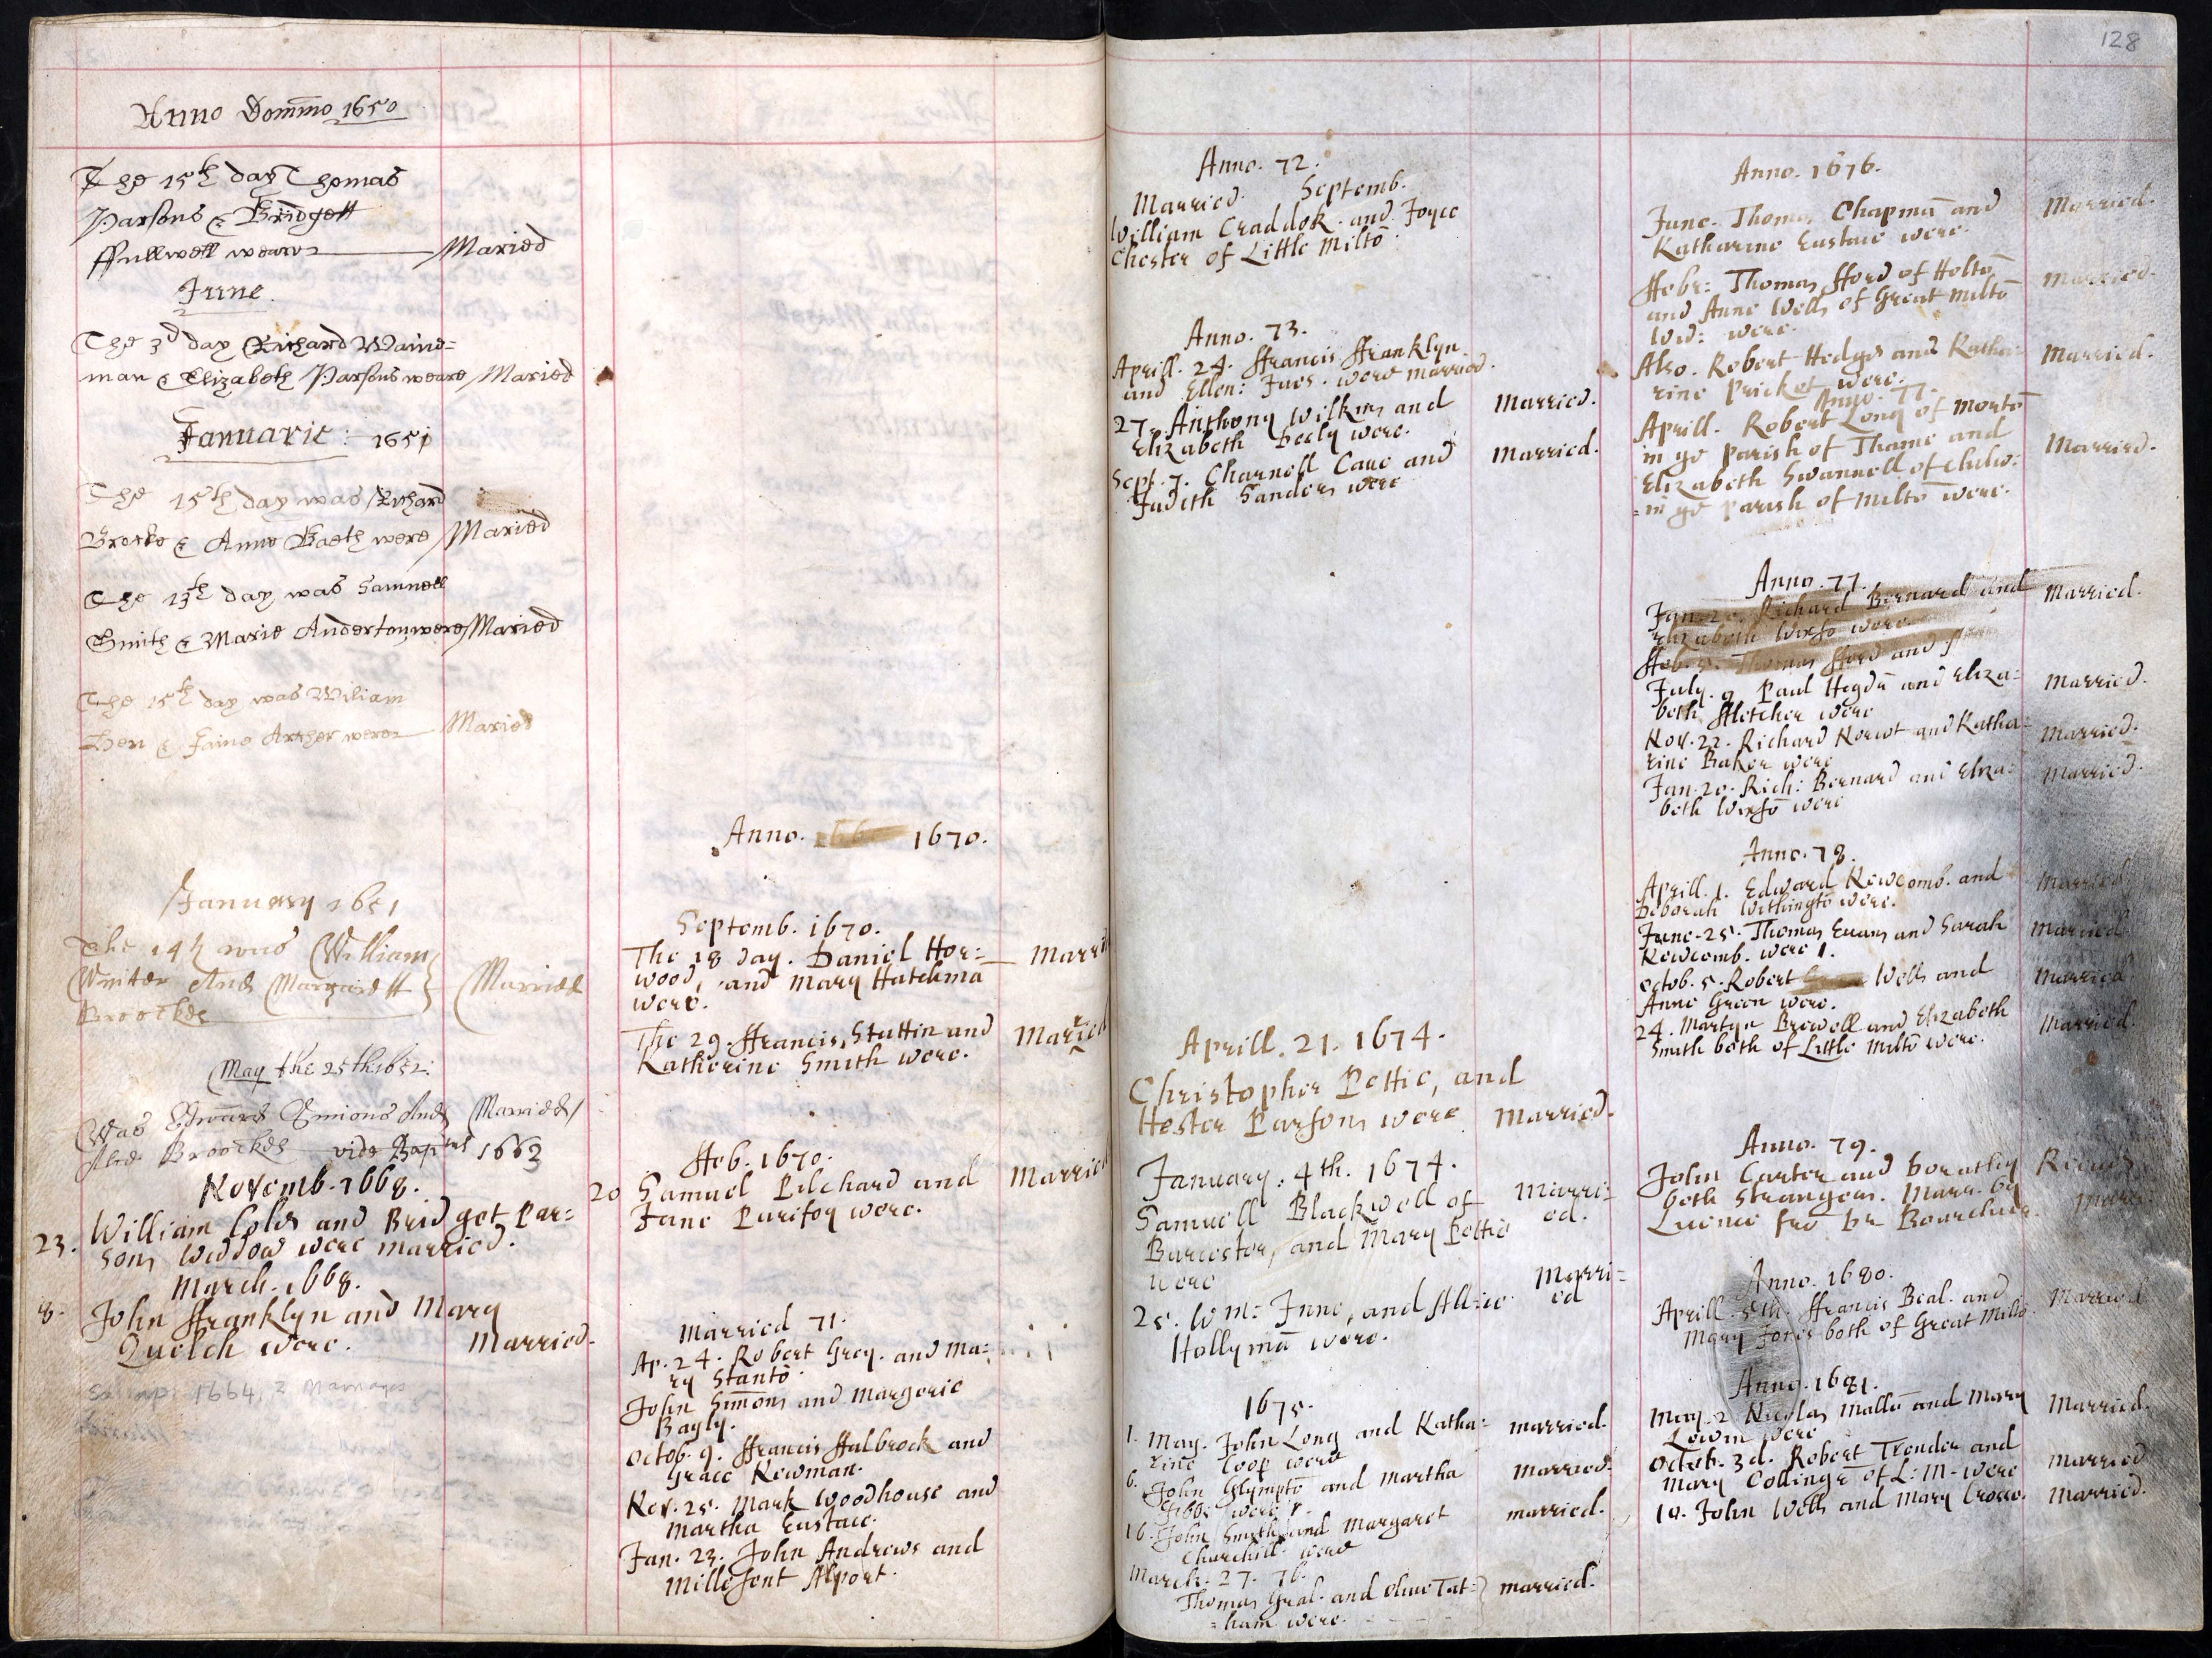 Anno Dommo 1650
The 15th day Thomas
Parsons & Bridgett
ffullwell weare Maried
June
The 3d day Richard Waine=
man & Elizabeth Parsons weare Maried
Januarie : 1651
The 15th day was Richard
Brocke & Anne Baeth were Maried
The 13th day was Samuell
Smith & Marie Anderton were Maried
The 15th day was Wiliam
& Jaine Archer were Maried
January 1651
The 14th was William
Winter And Margarett Married
Broockes
May the 25th 1652:
Was Edward And Married
Alce Broockes vide 1662
Novemb. 1668.
23. William Coles and Bridget Par=
sons Widdow were married.
March. 1668.
8. John ffranklyn and Mary
Quelch were. Married.
1664, 2 Marriages
Anno. 1670.
Septemb. 1670.
The 18 day. Daniel Hor= Marri
wood, and Mary Hatchmā
were.
The 29. ffrancis Stuttin and Married
Katherine Smith were.
ffeb. 1670.
20 Samuel Pilchard and Married
Jane Purifoy were.
Married 71.
Ap. 24. Robert Grey. and Ma:
ry Stantō.
John Sim̄ons and Margerie
Bayly.
Octob. 9. ffrancis ffalbrock and
Grace Newman.
Nov. 25. Mark Woodhouse and
Martha Eustace.
Jan. 23. John Andrews and
Millesent Alport.
128
Anno. 72.
Married. Septemb.
William Craddok. and Joyce
Chester of Little Miltō.
Anno. 73.
Aprill. 24. ffrancis ffranklyn
and Ellen: Jues. were married.
27. Anthony Wilkins and Married.
Elizabeth Beely were.
Sept. 7. Charnell Caue and Married.
Judith Sanders were
Aprill. 21. 1674.
Christopher Pettie, and
Hester Parsons were Married.
January. 4th. 1674.
Samuell Blackwell of Marri=
Burcester, and Mary Pettie ed.
were
25. Wm: Inne, and Allice Marri=
Hollymā were. ed
1675.
1. May. John Long and Katha= married.
rine Coop were
6. John Glymptō and Martha Married.
Gibbs were.
16. John Smith and Margaret married.
Churchill were
March. 27. 76.
Thomas Gral. and Oliue Tat= married.
=ham were.
Anno. 1676.
June. Thomas Chapmā and Married.
Katharine Eustace were.
ffebr: Thomas fford of Holtō Married.
and Anne Wells of Great Miltō
Wid: were.
Also. Robert Hedges and Katha= Married.
rine Pricket were.
Anno. 77.
Aprill. Robert Long of Mortō
in ye parish of Thame and
Elizabeth Swannell of Chilw: Married.
=in ye parish of Miltō were.
Anno. 77.
Jan. 20. Richard Bernard and Married.
Elizabeth Wixsō were
ffeb. 5. Thomas fford and
July. 9 Paul Hegdē and Eliza= Married.
beth ffletcher were
Nov. 22. Richard Norcot and Katha= Married.
rine Baker were
Jan. 20. Rich: Bernard and Eliza= Married.
beth Wixsō were
Anno. 78.
Aprill. 1. Edward Newcomb. and Married.
Deborah Withingtō were.
June. 25. Thomas Euans and Sarah Married.
Newcomb. were.
Octob. 5. Robert Wells and Married
Anne Green were.
24. Martyn Brewell and Elizabeth Married.
Smith both of Little Miltō were.
Anno. 79.
John Carter and Dorathy
both strangers. Marr. by
Anno. 1680.
Aprill. 5th. ffrancis Beal. and Married
Mary Jones both of Great Miltō.
Anno. 1681.
May. 2 Nicolas Mallū and Mary Married.
Lewin were
Octob. 3d. Robert Trender and
Mary Collinge of L: M- were Married
10. John Wells and Mary Crosse. Married.